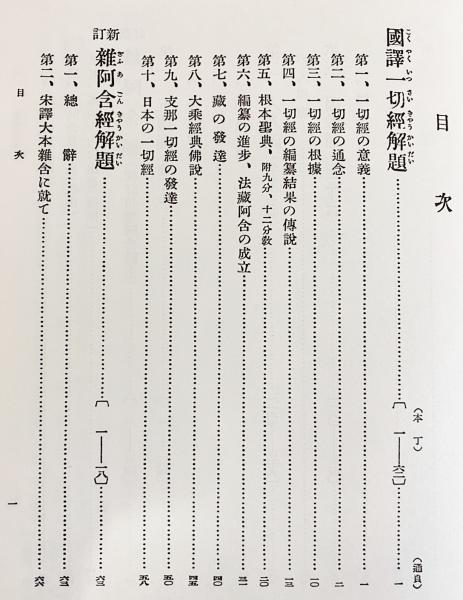 目次
（本丁）
（通頁）
國譯一切經解題……〔一——六二〕……一
こくやくいつさいきやうかいだい
第一、一切經の意義……一
第二、一切經の通念……二
第三、一切經の根據……一〇
第四、一切經の編纂結果の傳說……一三
第五、根本聖典、附九分、十二分敎……二〇
第六、編纂の進步、法藏阿含の成立……三一
第七、藏の發達……四〇
第八、大乘經典佛說……四五
第九、支那一切經の發達……五〇
第十、日本の一切經……五八
新訂 雜阿含經解題……〔一——一八〕……六三
ざふあごんきやうかいだい
第一、總辭……六三
第二、宋譯大本雜含に就て……六六
目次
一